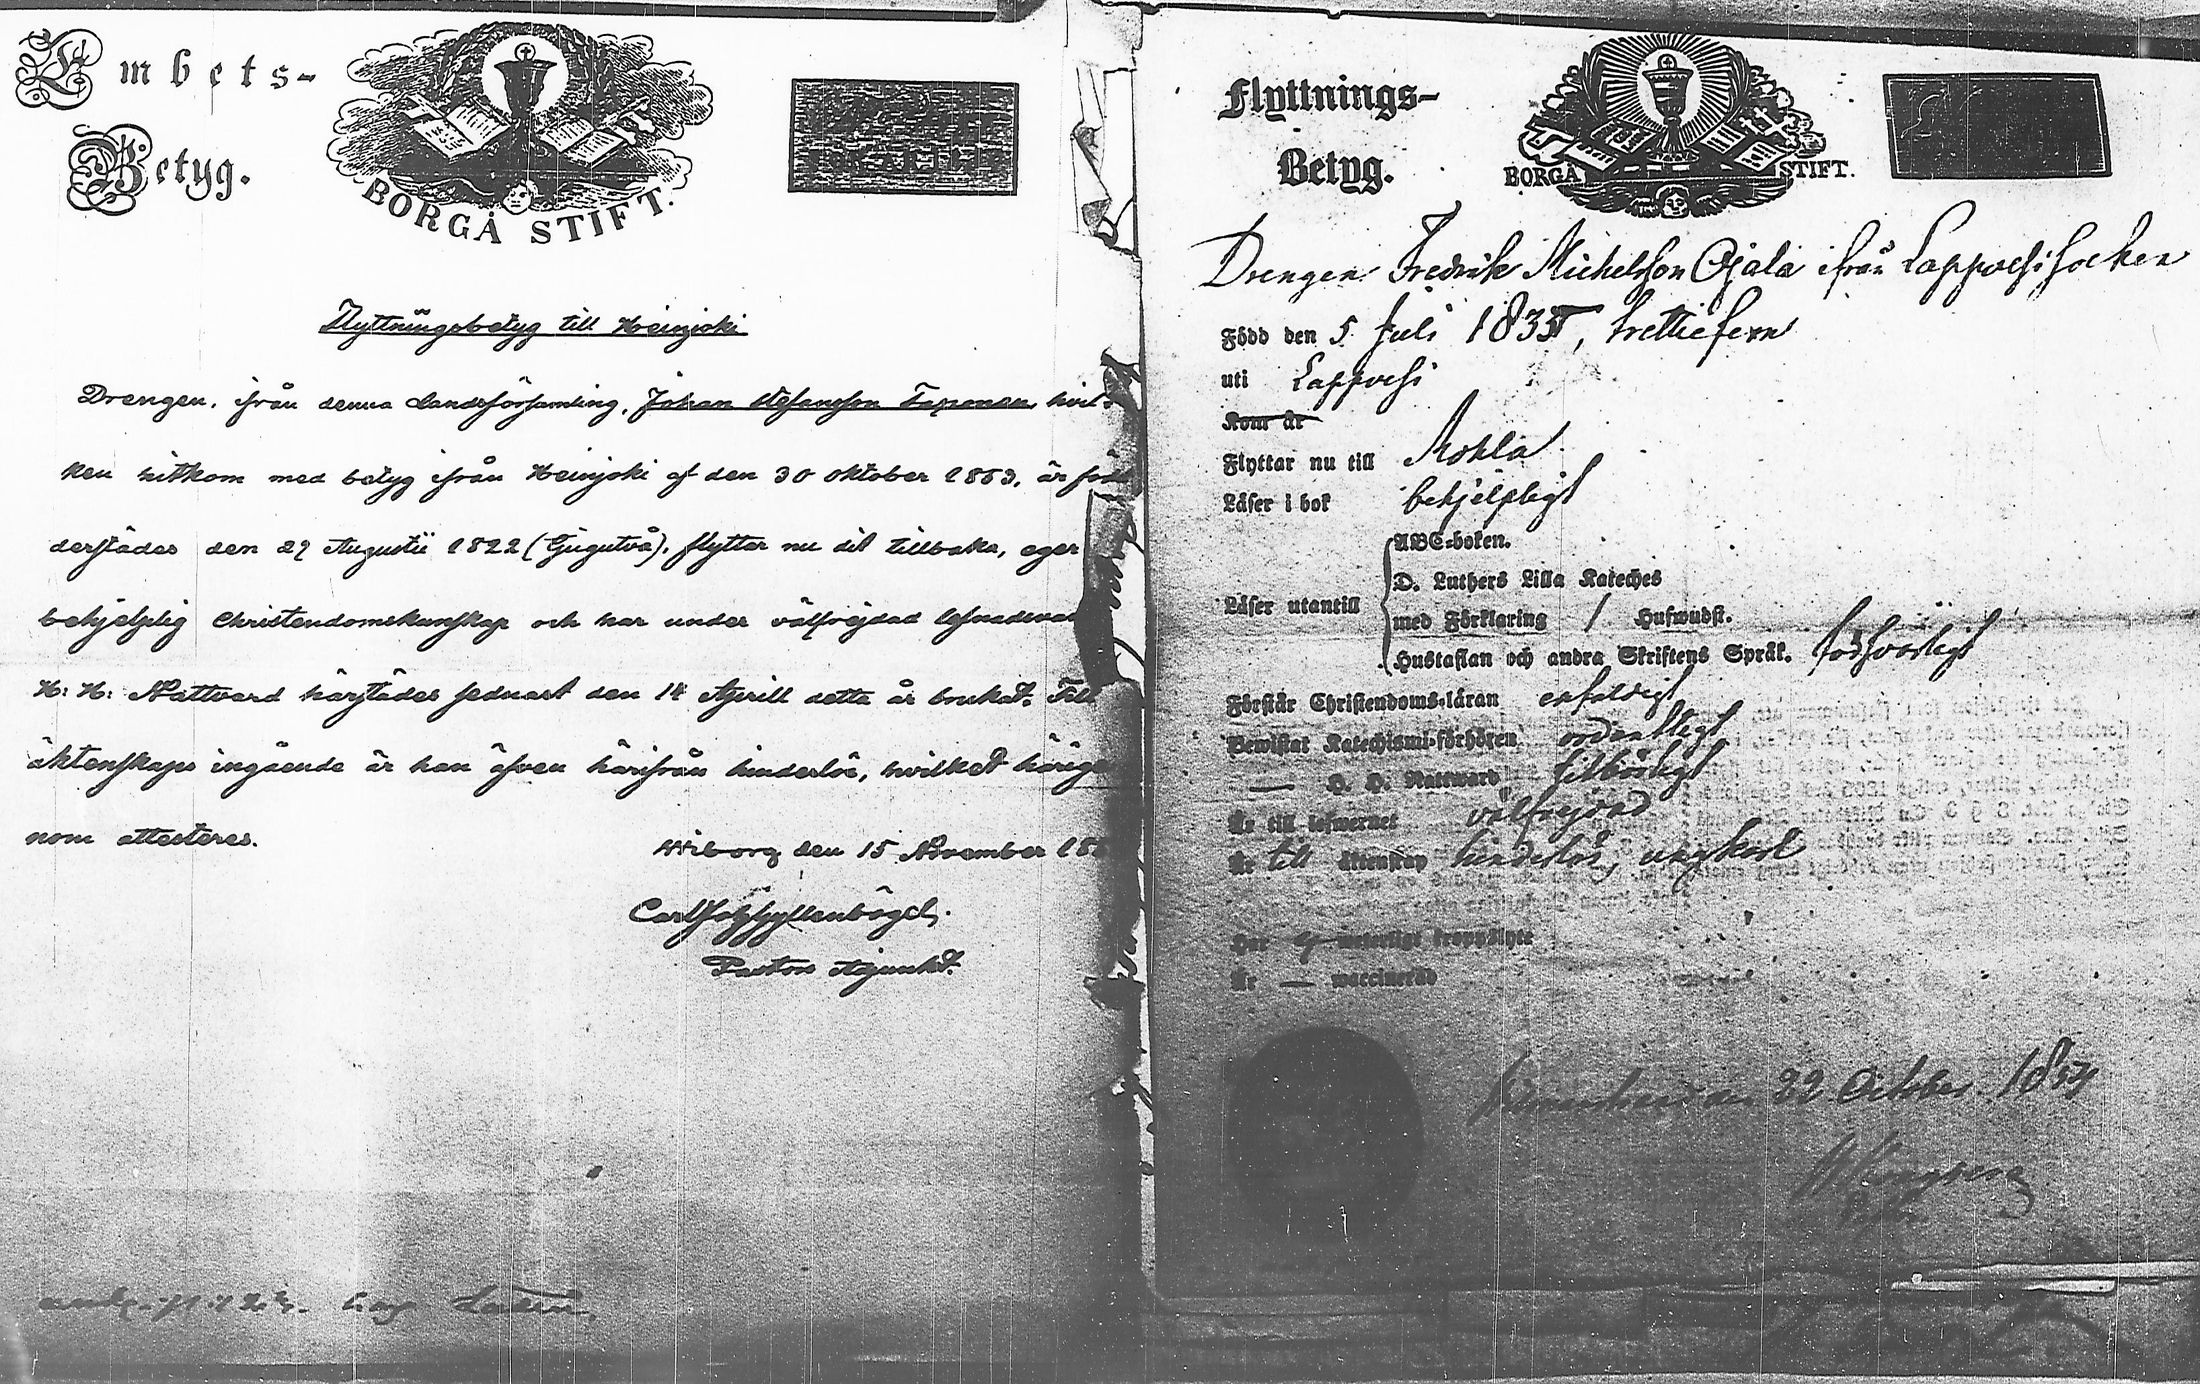 Embets-
Betyg.
BORGÅ STIFT.
Flyttningsbetyg till Heinjoki
Drengen, ifrån denna Landsförsamling, Johan Stefansson Taponen, hvil-
ken hitkom med betyg ifrån Heinjoki af den 30 oktober 1863, är född
derstädes den 29 Augustii 1822 (tjugutvå), flyttar nu dit tillbaka, eger
behjelplig Christendomskunskap och har under välfrejdad lefnadsvan
H: H: Nattvard härstädes sednast den 14 Aprill detta år brukat. Till
äktenskaps ingående är han äfven härifrån hinderlös, hvilket härige
nom attesteres.
Wiborg den 15 November
Pastors Adjunkt.
Flyttnings-
Betyg.
BORGÅ STIFT.
Drengen Fredrik Michelsson Ojala ifrån Lappvesi socken
Född den 5 Juli 1835, trettiefem
uti Lappvesi
Kom år
Flyttar nu till Mohla
Läser i bok behjelpligt
ABC-boken.
D. Luthers Lilla Kateches
Läser utantill
med Förklaring / Hufwudst.
Hustaflan och andra Skriftens Språk. försvarligt
Förstår Christendoms-läran enfaldigt
Bewistat Katechismi-förhören ordentligt
— H. H. Nattward tillbörligt
Är till lefwernet välfrejdad
Är till äktenskap hinderlös, ungkarl
Har ej naturligt kroppslyte
Är — waccinerad
22 October 185